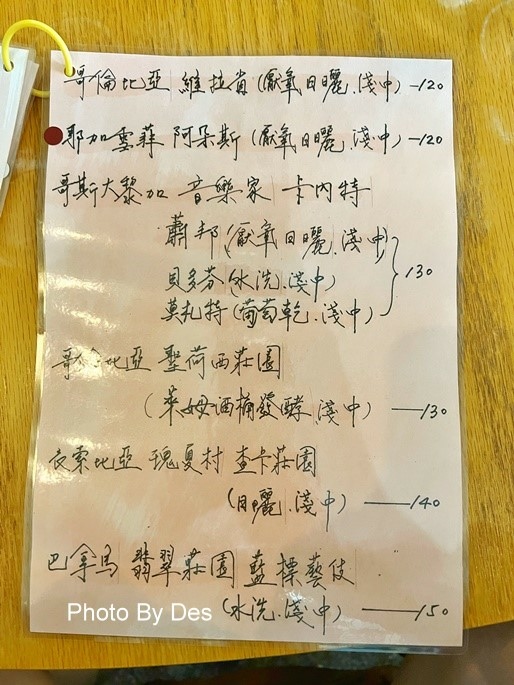 哥倫比亞 維拉省 (厭氧日曬.淺中) —120
耶加雪菲 阿朵斯 (厭氧日曬.淺中) —120
哥斯大黎加 音樂家 卡內特
蕭邦 (厭氧日曬.淺中)
貝多芬 (水洗.淺中)
130
莫札特 (葡萄乾.淺中)
哥倫比亞 聖荷西莊園
(萊姆酒桶發酵.淺中) —130
衣索比亞 瑰夏村 查卡莊園
(日曬.淺中) —140
巴拿馬 翡翠莊園 藍標藝伎
(水洗.淺中) —150
Photo By Des